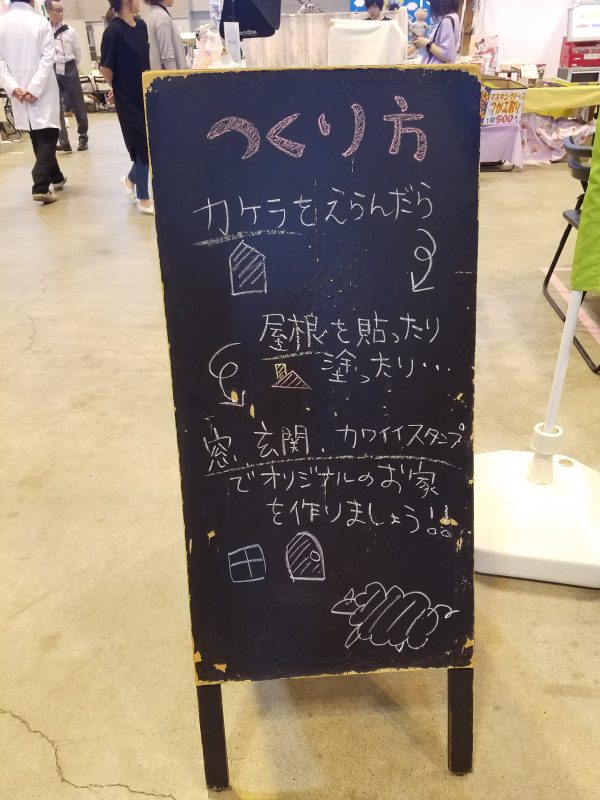 つくり方
カケラをえらんだら
屋根を貼ったり
塗ったり…
窓、玄関、カワイイスタンプ
でオリジナルのお家
を作りましょう!!
1個500円